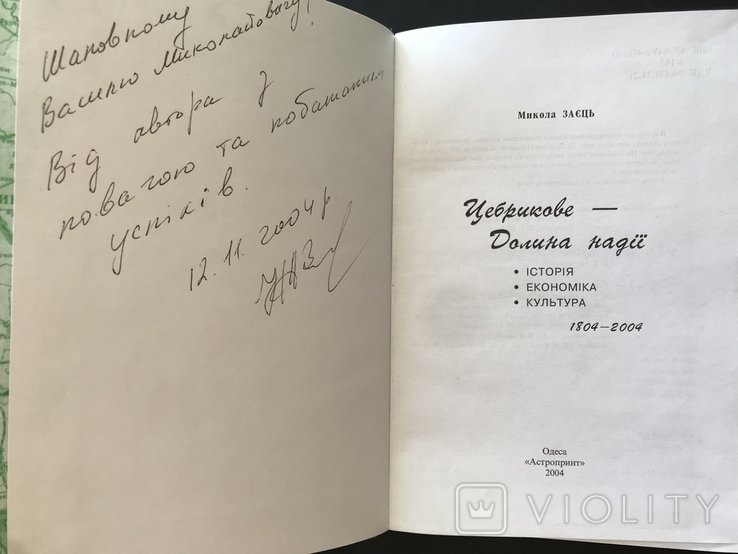 Шановному
Василю Миколайовичу!
Від автора з
повагою та побажанням
успіхів.
12.11.2004 р.
Микола ЗАЄЦЬ
Цебрикове —
Долина надії
• ІСТОРІЯ
• ЕКОНОМІКА
• КУЛЬТУРА
1804–2004
Одеса
«Астропринт»
2004
VIOLITY